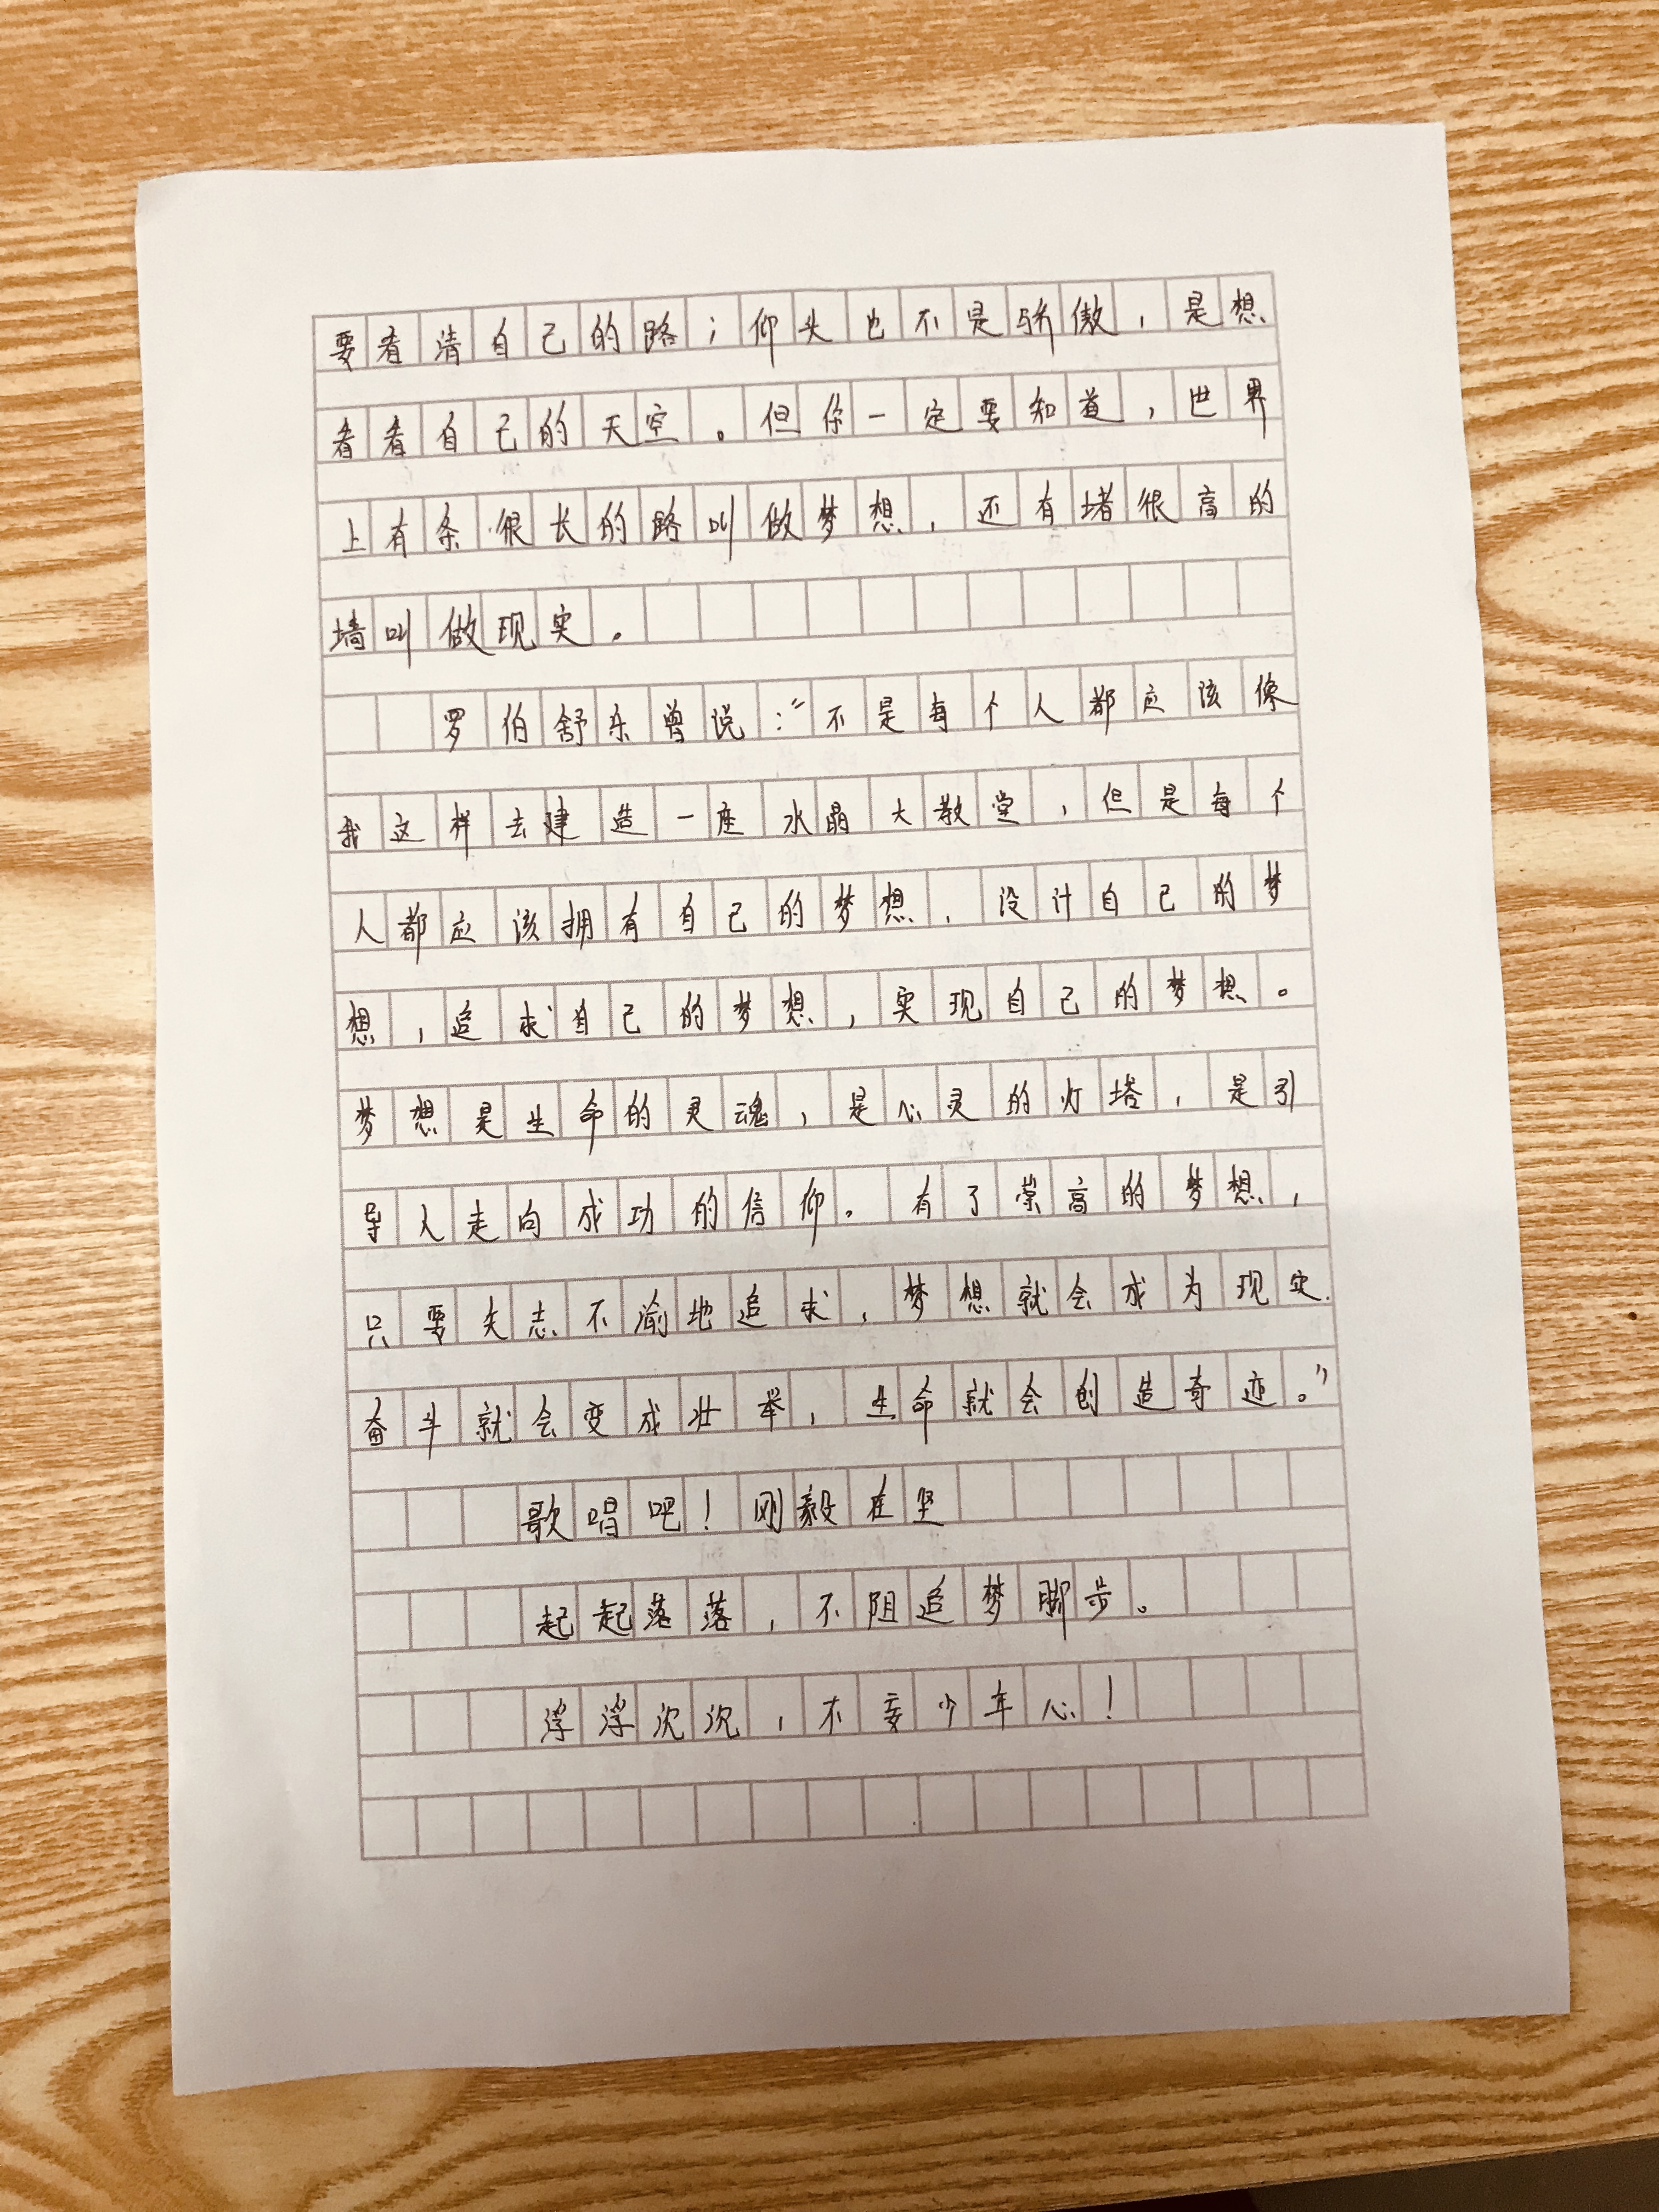 要看清自己的路；仰头也不是骄傲，是想
看看自己的天空。但你一定要知道，世界
上有条很长的路叫做梦想，还有堵很高的
墙叫做现实。
罗伯舒乐曾说：“不是每个人都应该像
我这样去建造一座水晶大教堂，但是每个
人都应该拥有自己的梦想，设计自己的梦
想，追求自己的梦想，实现自己的梦想。
梦想是生命的灵魂，是心灵的灯塔，是引
导人走向成功的信仰。有了崇高的梦想，
只要矢志不渝地追求，梦想就会成为现实.
奋斗就会变成壮举，生命就会创造奇迹。”
歌唱吧！刚毅在坚
起起落落，不阻追梦脚步。
浮浮沉沉，不妄少年心！